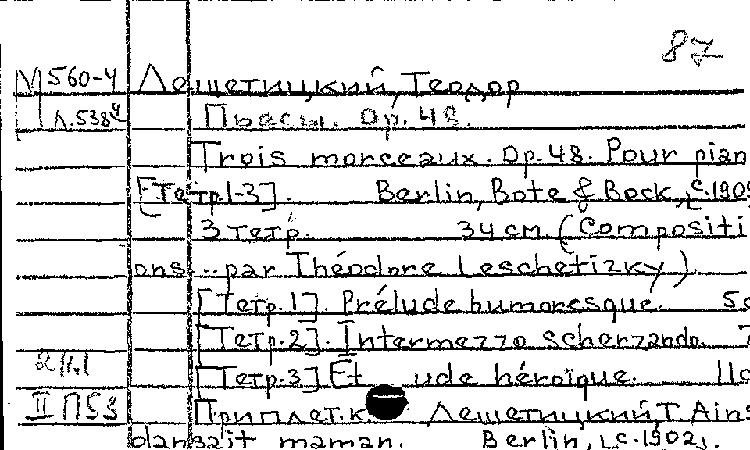 87
М 560-4 Лешетицкий, Теодор
Л.538 Пьесы. Op. 48.
Trois morceaux. Op. 48. Pour pian
[Тетр.1-3]. Berlin, Bote & Bock, c.190
3 тетр. 34 см. (Compositi
ons .. par Théodore Leschetizky).
[Тетр.1]. Prélude humoresque.
[Тетр.2]. Intermezzo scherzando.
[Тетр.3] Et ude héroïque.
II П53 Приплет. к Лешетицкий, Т. Ains
dansait maman. Berlin, c.1902.